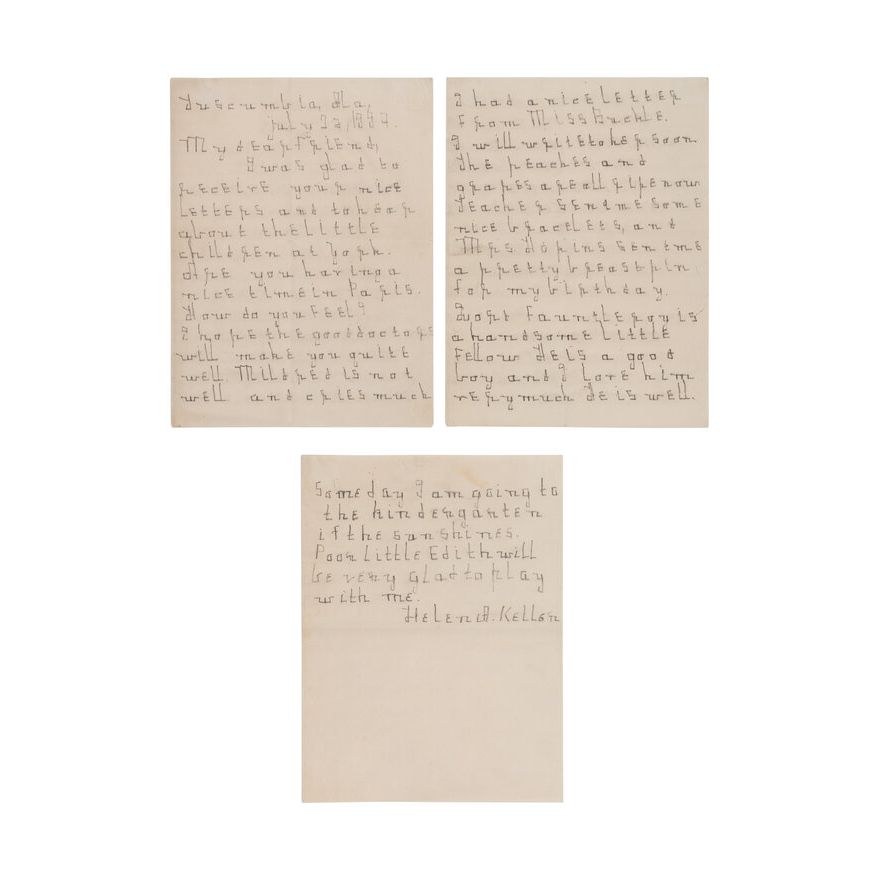 Tuscumbia, Ala,
July
My dear friend,
I was glad to
receive your nice
letters and to hear
about the little
children at York.
Are you having a
nice time in Paris.
How do you feel?
I hope the good doctors
will make you quite
well. Mildred is not
well and cries much
I had a nice letter
from Miss
I will write to her soon.
The peaches and
grapes are all ripe now.
Teacher sent me some
nice bracelets, and
Mrs. Hopins sent me
a pretty breast pin
for my birthday.
Lord Fauntleroy is
a handsome little
fellow He is a good
boy and I love him
very much He is well.
Some day I am going to
the kindergarten
if the sun shines.
Poor little Edith will
be very glad to play
with me.
Helen A. Keller